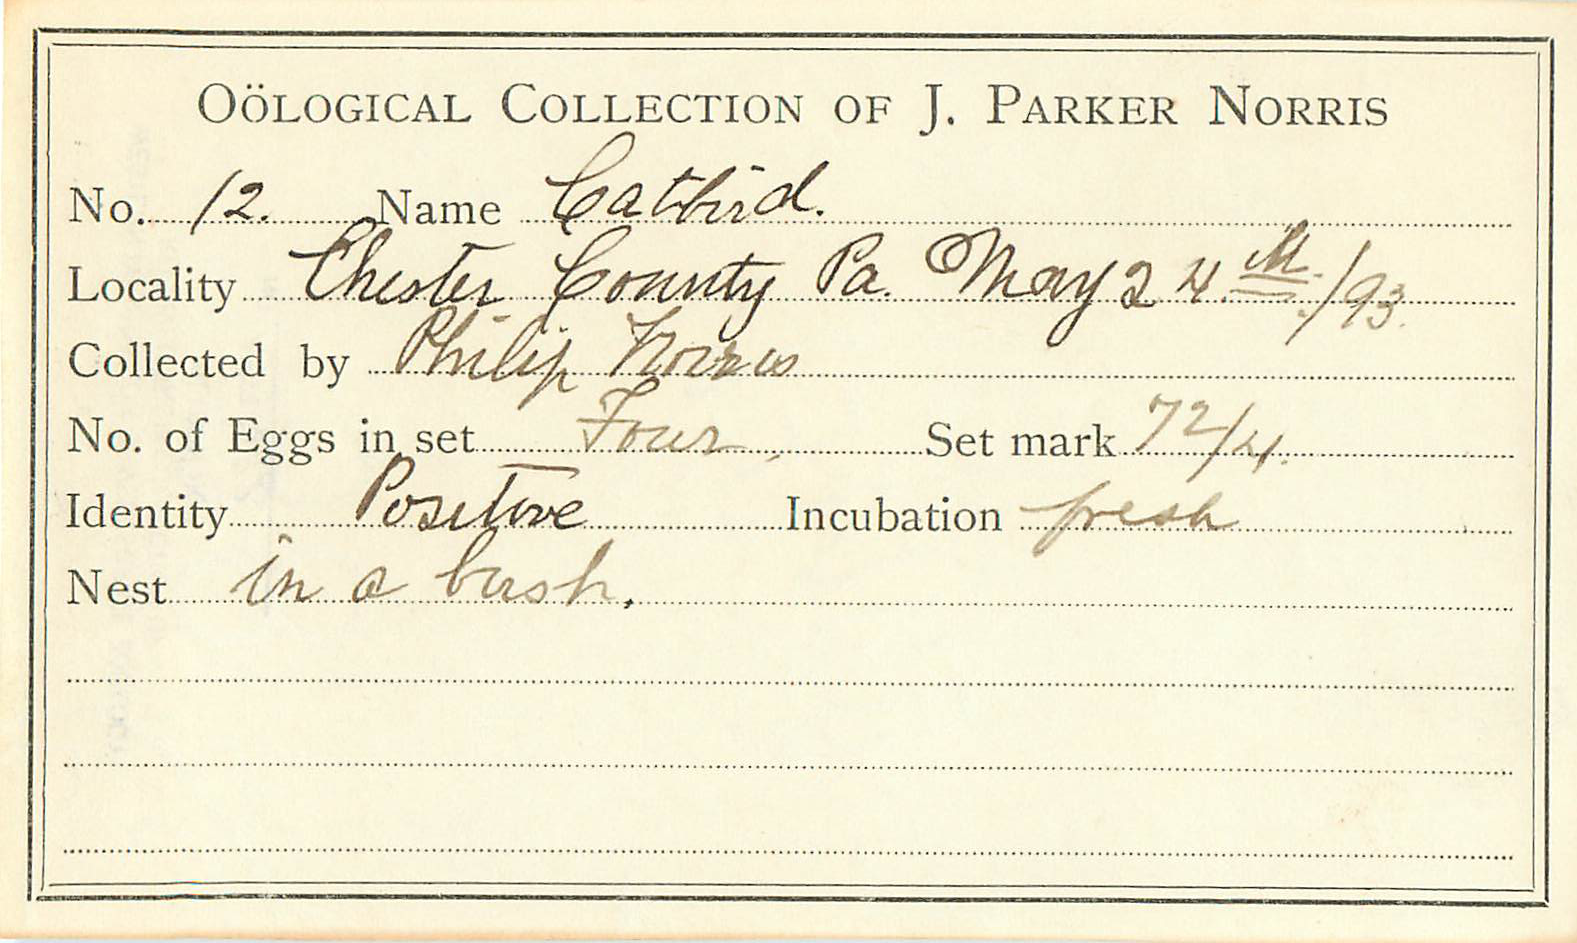 OÖLOGICAL COLLECTION OF J. PARKER NORRIS
No. 12. Name Catbird.
Locality Chester County Pa. May 24th./93.
Collected by Philip Norris
No. of Eggs in set Four, Set mark 72/4.
Identity Positive Incubation fresh
Nest in a bush.